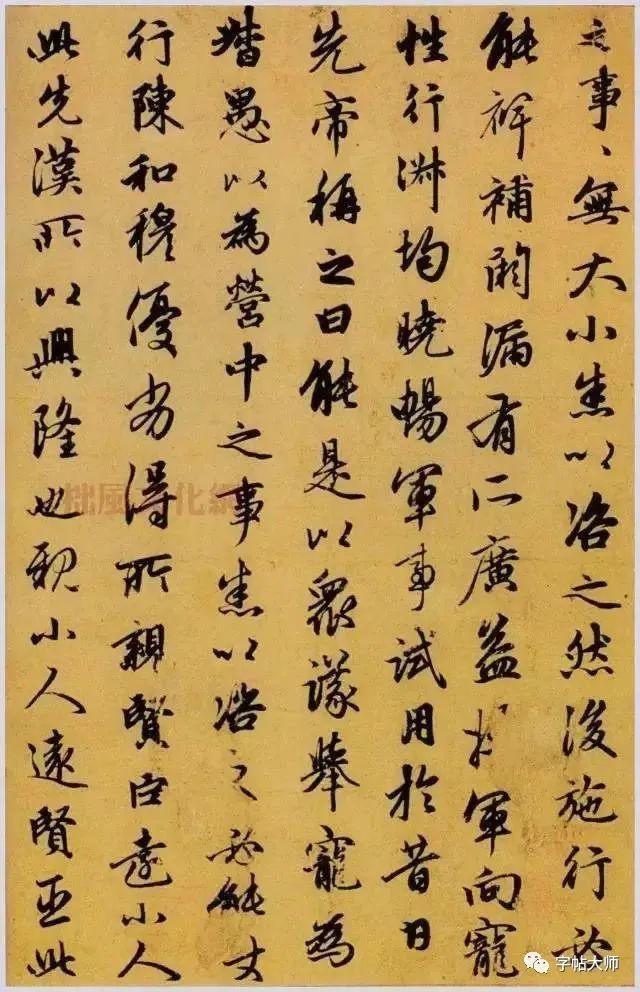 之事、無大小悉以咨之然後施行必
能裨補闕漏有所廣益將軍向寵
性行淑均曉暢軍事試用於昔日
先帝稱之曰能是以眾議舉寵為
督愚以為營中之事悉以咨之必能使
行陳和穆優劣得所親賢臣遠小人
此先漢所以興隆也親小人遠賢臣此
拙風文化網
字帖大师